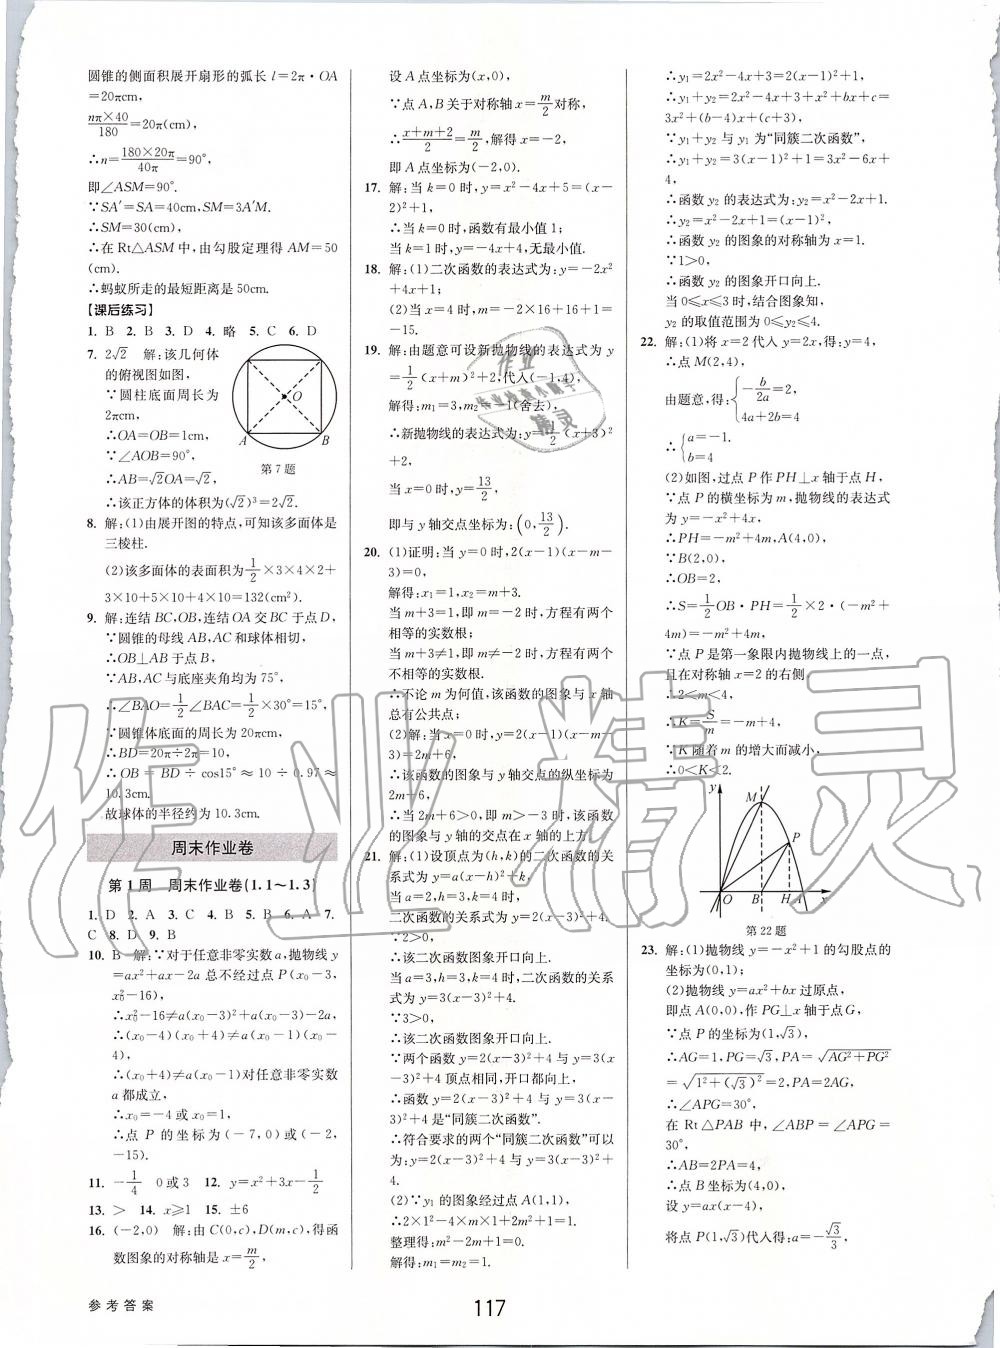 圆锥的侧面积展开扇形的弧长 l=2π·OA
=20πcm,
nπ×40/180=20π(cm),
∴n=180×20π/40π=90°,
即∠ASM=90°.
∵SA′=SA=40cm,SM=3A′M.
∴SM=30(cm).
∴在 Rt△ASM 中,由勾股定理得 AM=50
(cm).
∴蚂蚁所走的最短距离是50cm.
【课后练习】
1. B 2. B 3. D 4. 略 5. C 6. D
7. 2√2 解:该几何体
的俯视图如图,
∵圆柱底面周长为
2πcm,
∴OA=OB=1cm,
∵∠AOB=90°,
∴AB=√2OA=√2,
∴该正方体的体积为(√2)³=2√2.
O
A
B
第7题
8. 解:(1)由展开图的特点,可知该多面体是
三棱柱.
(2)该多面体的表面积为1/2×3×4×2+
3×10+5×10+4×10=132(cm²).
9. 解:连结 BC,OB,连结 OA 交 BC 于点 D,
∵圆锥的母线 AB,AC 和球体相切,
∴OB⊥AB 于点 B,
∵AB,AC 与底座夹角均为75°,
∴∠BAO=1/2∠BAC=1/2×30°=15°,
∵圆锥体底面的周长为20π,
∴BD=20π÷2π=10,
∴OB=BD÷cos15°≈10÷0.97≈
10.3cm.
故球体的半径约为10.3cm.
周末作业卷
第1周 周末作业卷(1.1～1.3)
1. D 2. A 3. C 4. C 5. B 6. A 7.
C 8. D 9. B
10. B 解:∵对于任意非零实数a,抛物线y
=ax²+ax-2a 总不经过点 P(x₀-3,
x₀²-16),
∴x₀²-16≠a(x₀-3)²+a(x₀-3)-2a,
∴(x₀-4)(x₀+4)≠a(x₀-1)(x₀-
4),
∴(x₀+4)≠a(x₀-1)对任意非零实数
a都成立,
∴x₀=-4或x₀=1,
∴点 P 的坐标为(-7,0)或(-2,
-15).
11. -1/4 0或3 12. y=x²+3x-1/2
13. > 14. x≥1 15. ±6
16. (-2,0) 解:由 C(0,c),D(m,c),得函
数图象的对称轴是 x=m/2,
设A点坐标为(x,0),
∵点 A,B 关于对称轴 x=m/2对称,
∴x+m+2/2=m/2,解得x=-2,
即A点坐标为(-2,0).
17. 解:当k=0时,y=x²-4x+5=(x-
2)²+1,
∴当k=0时,函数有最小值1;
当k=1时,y=-4x+4,无最小值.
18. 解:(1)二次函数的表达式为:y=-2x²
+4x+1;
(2)当 x=4 时,m=-2×16+16+1=
-15.
19. 解:由题意可设新抛物线的表达式为 y
=1/2(x+m)²+2,代入(-1,4),
解得:m₁=3,m₂=-1(舍去),
∴新抛物线的表达式为:y=1/2(x+3)²
+2,
当 x=0时,y=13/2,
即与y轴交点坐标为:(0,13/2).
20. (1)证明:当 y=0时,2(x-1)(x-m-
3)=0,
解得:x₁=1,x₂=m+3.
当 m+3=1,即 m=-2时,方程有两个
相等的实数根;
当 m+3≠1,即 m≠-2时,方程有两个
不相等的实数根.
∴不论 m 为何值,该函数的图象与 x 轴
总有公共点;
(2)解:当 x=0 时,y=2(x-1)(x-m-
3)=2m+6,
∴该函数的图象与y轴交点的纵坐标为
2m+6,
∴当 2m+6>0,即 m>-3 时,该函数
的图象与y轴的交点在x轴的上方.
21. 解:(1)设顶点为(h,k)的二次函数的关
系式为y=a(x-h)²+k,
当a=2,h=3,k=4时,
二次函数的关系式为y=2(x-3)²+4.
∵2>0,
∴该二次函数图象开口向上.
当a=3,h=3,k=4时,二次函数的关系
式为y=3(x-3)²+4.
∵3>0,
∴该二次函数图象开口向上.
∵两个函数y=2(x-3)²+4与y=3(x-
3)²+4顶点相同,开口都向上,
∴函数 y=2(x-3)²+4 与 y=3(x-
3)²+4是“同簇二次函数”.
∴符合要求的两个“同簇二次函数”可以
为:y=2(x-3)²+4与y=3(x-3)²+
4.
(2)∵y₁的图象经过点A(1,1),
∴2×1²-4×m×1+2m²+1=1.
整理得:m²-2m+1=0.
解得:m₁=m₂=1.
∴y₁=2x²-4x+3=2(x-1)²+1,
∴y₁+y₂=2x²-4x+3+x²+bx+c=
3x²+(b-4)x+(c+3),
∵y₁+y₂与y₁为“同簇二次函数”,
∴y₁+y₂=3(x-1)²+1=3x²-6x+
4,
∴函数y₂的表达式为:y₂=x²-2x+1.
∴y₂=x²-2x+1=(x-1)²,
∴函数y₂的图象的对称轴为x=1.
∵1>0,
∴函数y₂的图象开口向上.
当0≤x≤3时,结合图象知,
y₂的取值范围为0≤y₂≤4.
22. 解:(1)将x=2代入y=2x,得:y=4,
∴点M(2,4),
由题意,得:{-b/2a=2,
4a+2b=4
∴{a=-1.
b=4
(2)如图,过点P作PH⊥x轴于点H,
∵点P的横坐标为m,抛物线的表达式
为y=-x²+4x,
∴PH=-m²+4m,A(4,0),
∵B(2,0),
∴OB=2,
∴S=1/2OB·PH=1/2×2·(-m²+
4m)=-m²+4m,
∵点P是第一象限内抛物线上的一点,
且在对称轴x=2的右侧,
∴2<m<4,
∴K=S/m=-m+4,
∵K随着m的增大而减小,
∴0<K<2.
y
M
P
O
B
H
A
x
第22题
23. 解:(1)抛物线 y=-x²+1 的勾股点的
坐标为(0,1);
(2)抛物线y=ax²+bx过原点,
即点A(0,0),作PG⊥x轴于点G,
∵点 P 的坐标为(1,√3),
∴AG=1,PG=√3,PA=√AG²+PG²
=√1²+(√3)²=2,
∴∠APG=30°,
在 Rt△PAB 中,∠ABP=∠APG=
30°,
∴AB=2PA=4,
∴点B坐标为(4,0),
设y=ax(x-4),
将点P(1,√3)代入得:a=-√3/3,
参考答案
117
作业精灵
作业
精灵